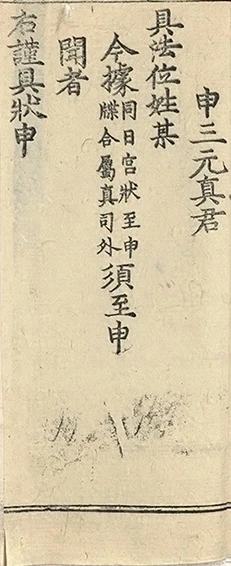 申三元真君
具法位姓某
今據同日宫狀至申牒合屬真司外須至申
聞者
右謹具狀申